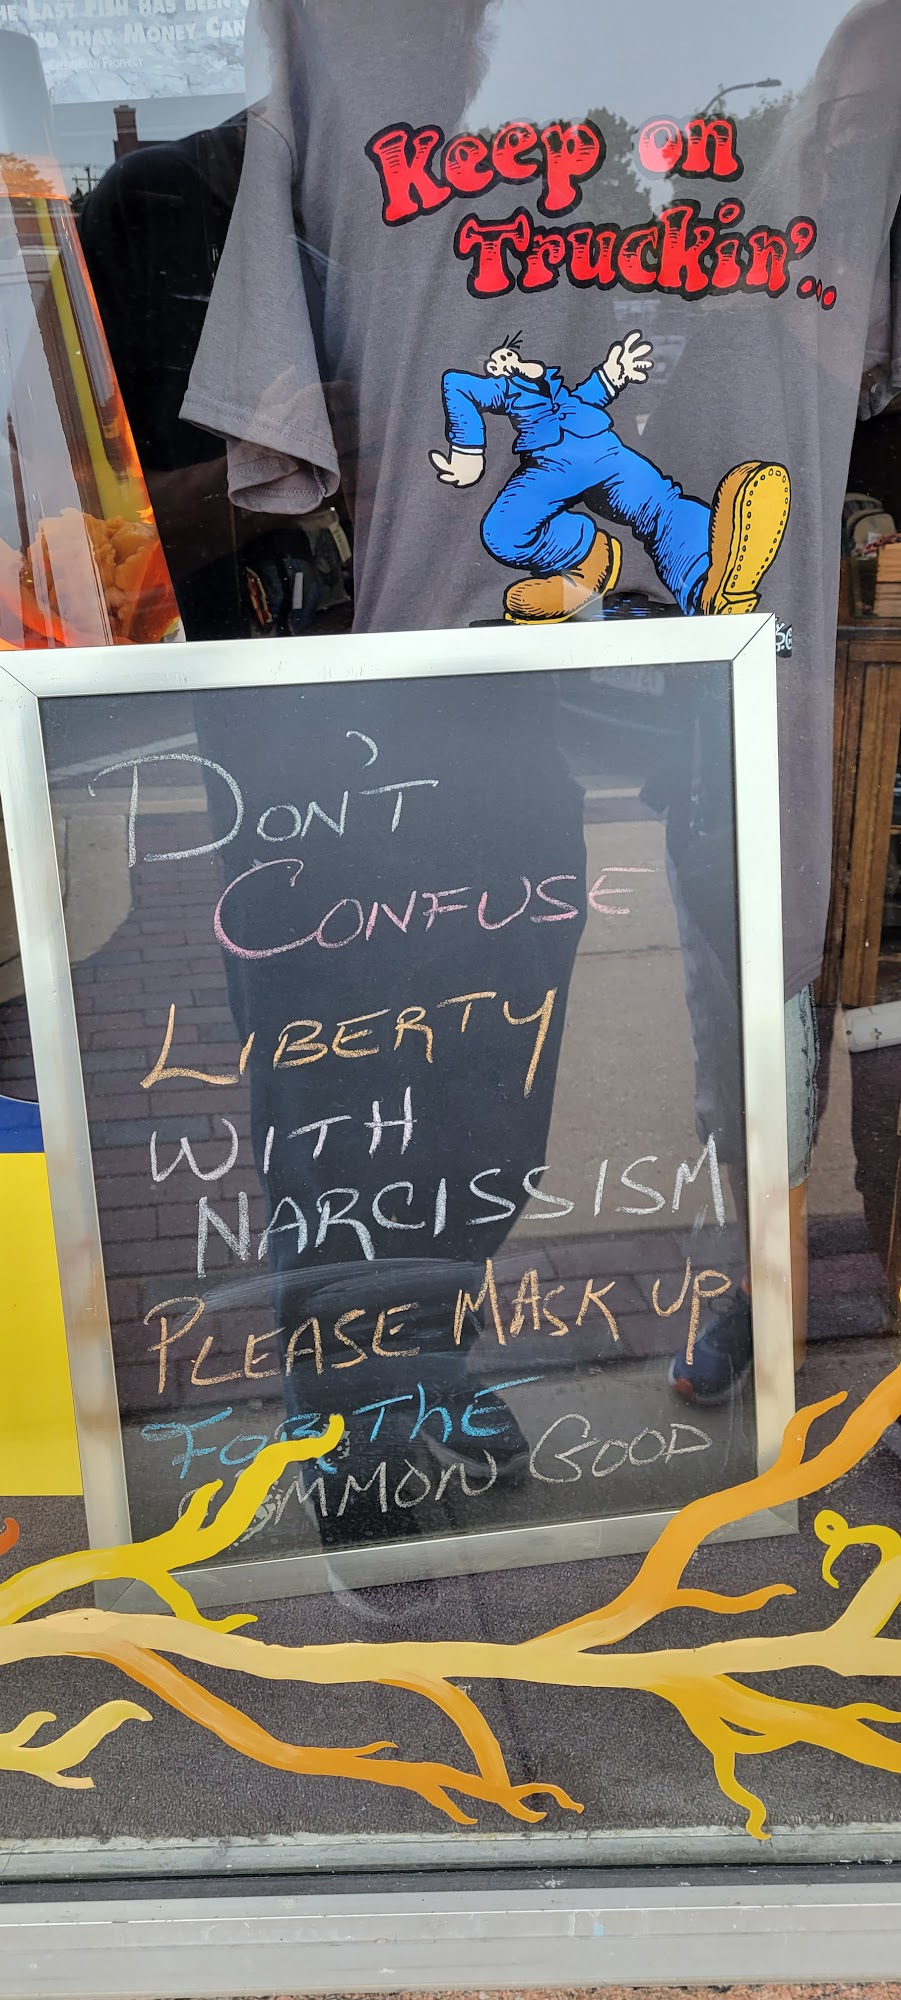 HE LAST FISH HAS BEEN
ND THAT MONEY CAN
PROPHECY
Keep on
Truckin'...
DON'T
CONFUSE
LIBERTY
WITH
NARCISSISM
PLEASE MASK UP
FOR THE
COMMON GOOD